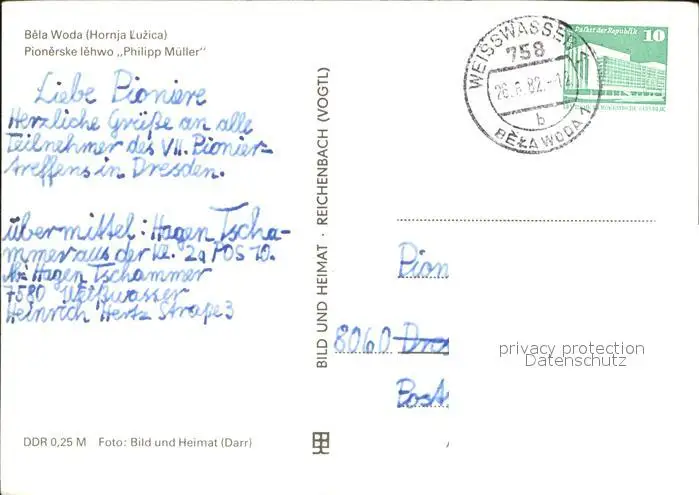 Běla Woda (Hornja Łužica)
Pioněrske lěhwo „Philipp Müller"
Liebe Pioniere
Herzliche Grüße an alle
Teilnehmer des VII. Pionier-
treffens in Dresden.
übermittel: Hagen Tscha-
mmer aus der Kl. 2a POS 10.
Hagen Tschammer
7580 Weißwasser
Heinrich Hertz Straße 3
DDR 0,25 M Foto: Bild und Heimat (Darr)
BILD UND HEIMAT · REICHENBACH (VOGTL)
WEISSWASSER
758
26.6.82.-12
b
BĚŁA WODA 1
Palast der Republik 10
Pion
8060 Dres
Posts
privacy protection
Datenschutz